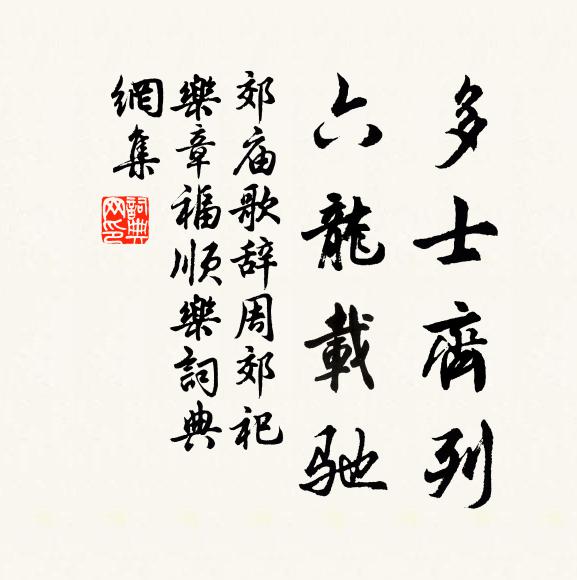 多士齊列
六龍載馳
郊庙歌辞周郊祀
樂章福順樂詞典
網集
詞典
网印